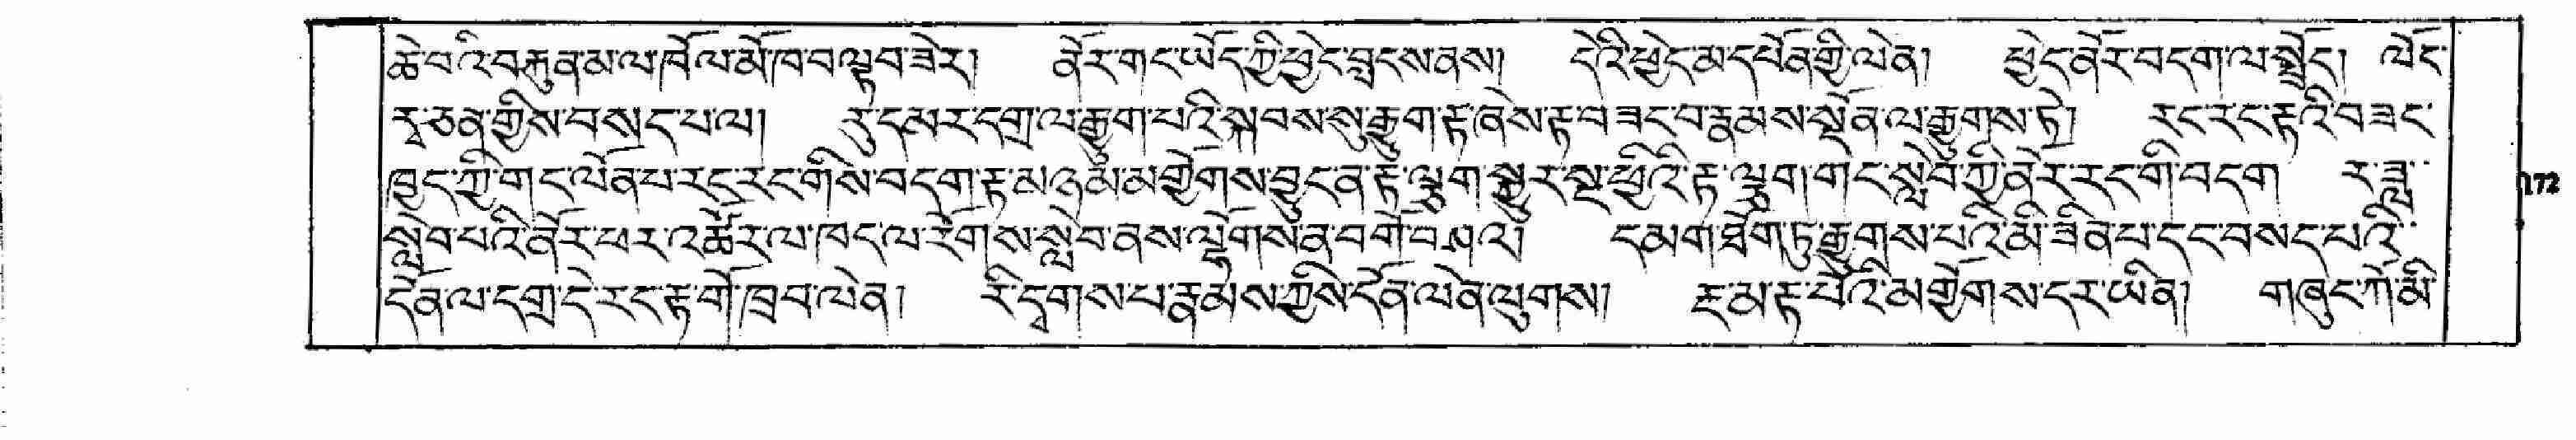 ཆེ་བའི་བརྐུན་མ་ལ་ཁོལ་མོ་ཁ་བལྟབ་ཟེར། ནོར་གང་ཡོད་ཀྱི་ཕྱེད་བླངས་ནས། དེའི་ཕྱེད་མ་དཔོན་གྱི་ལེན། ཕྱེད་ནོར་བདག་ལ་སྤྲོད། ལོང་
རྭ་ཅན་གྱིས་བསད་པ་ལ། རུ་དམར་དགྲ་ལ་རྒྱུག་པའི་སྐབས་སུ་རྒྱུག་རྟ་ཞེས་རྟ་བཟང་བ་རྣམས་སྔོན་ལ་རྒྱུགས་ཏེ། རང་རང་རྟའི་བཟང་
ཁྱད་ཀྱི་གང་ལོན་པ་རང་རང་གིས་བདག་རྟ་མཉམ་མགྱོགས་བྱུང་ན་རྟེ་ལྕུག་སྐྱུར་སྔ་ཕྱིའི་རྟ་ལྕུག་གང་སླེབ་ཀྱི་ནོར་རང་གི་བདག ར་ཟླ་
སླེབ་པའི་ནོར་ཕར་འཚོར་ལ་ཁད་ལ་རོགས་སླེབ་ནས་ལྡོགས་ན་བགོ་བཤའ། དམག་ཐོག་ཏུ་རྒྱུགས་པའི་མི་ཟིན་པ་དང་བསད་པའི་
དོན་ལ་དགྲ་དེ་རང་རྟ་གོ་ཁྲབ་ལེན། རི་དྭགས་པ་རྣམས་ཀྱིས་དོན་ལེན་ལུགས། རྔ་མ་རྟ་པོའི་མགྱོགས་དར་ཡིན། གཞུང་ཀེ་མི་
172